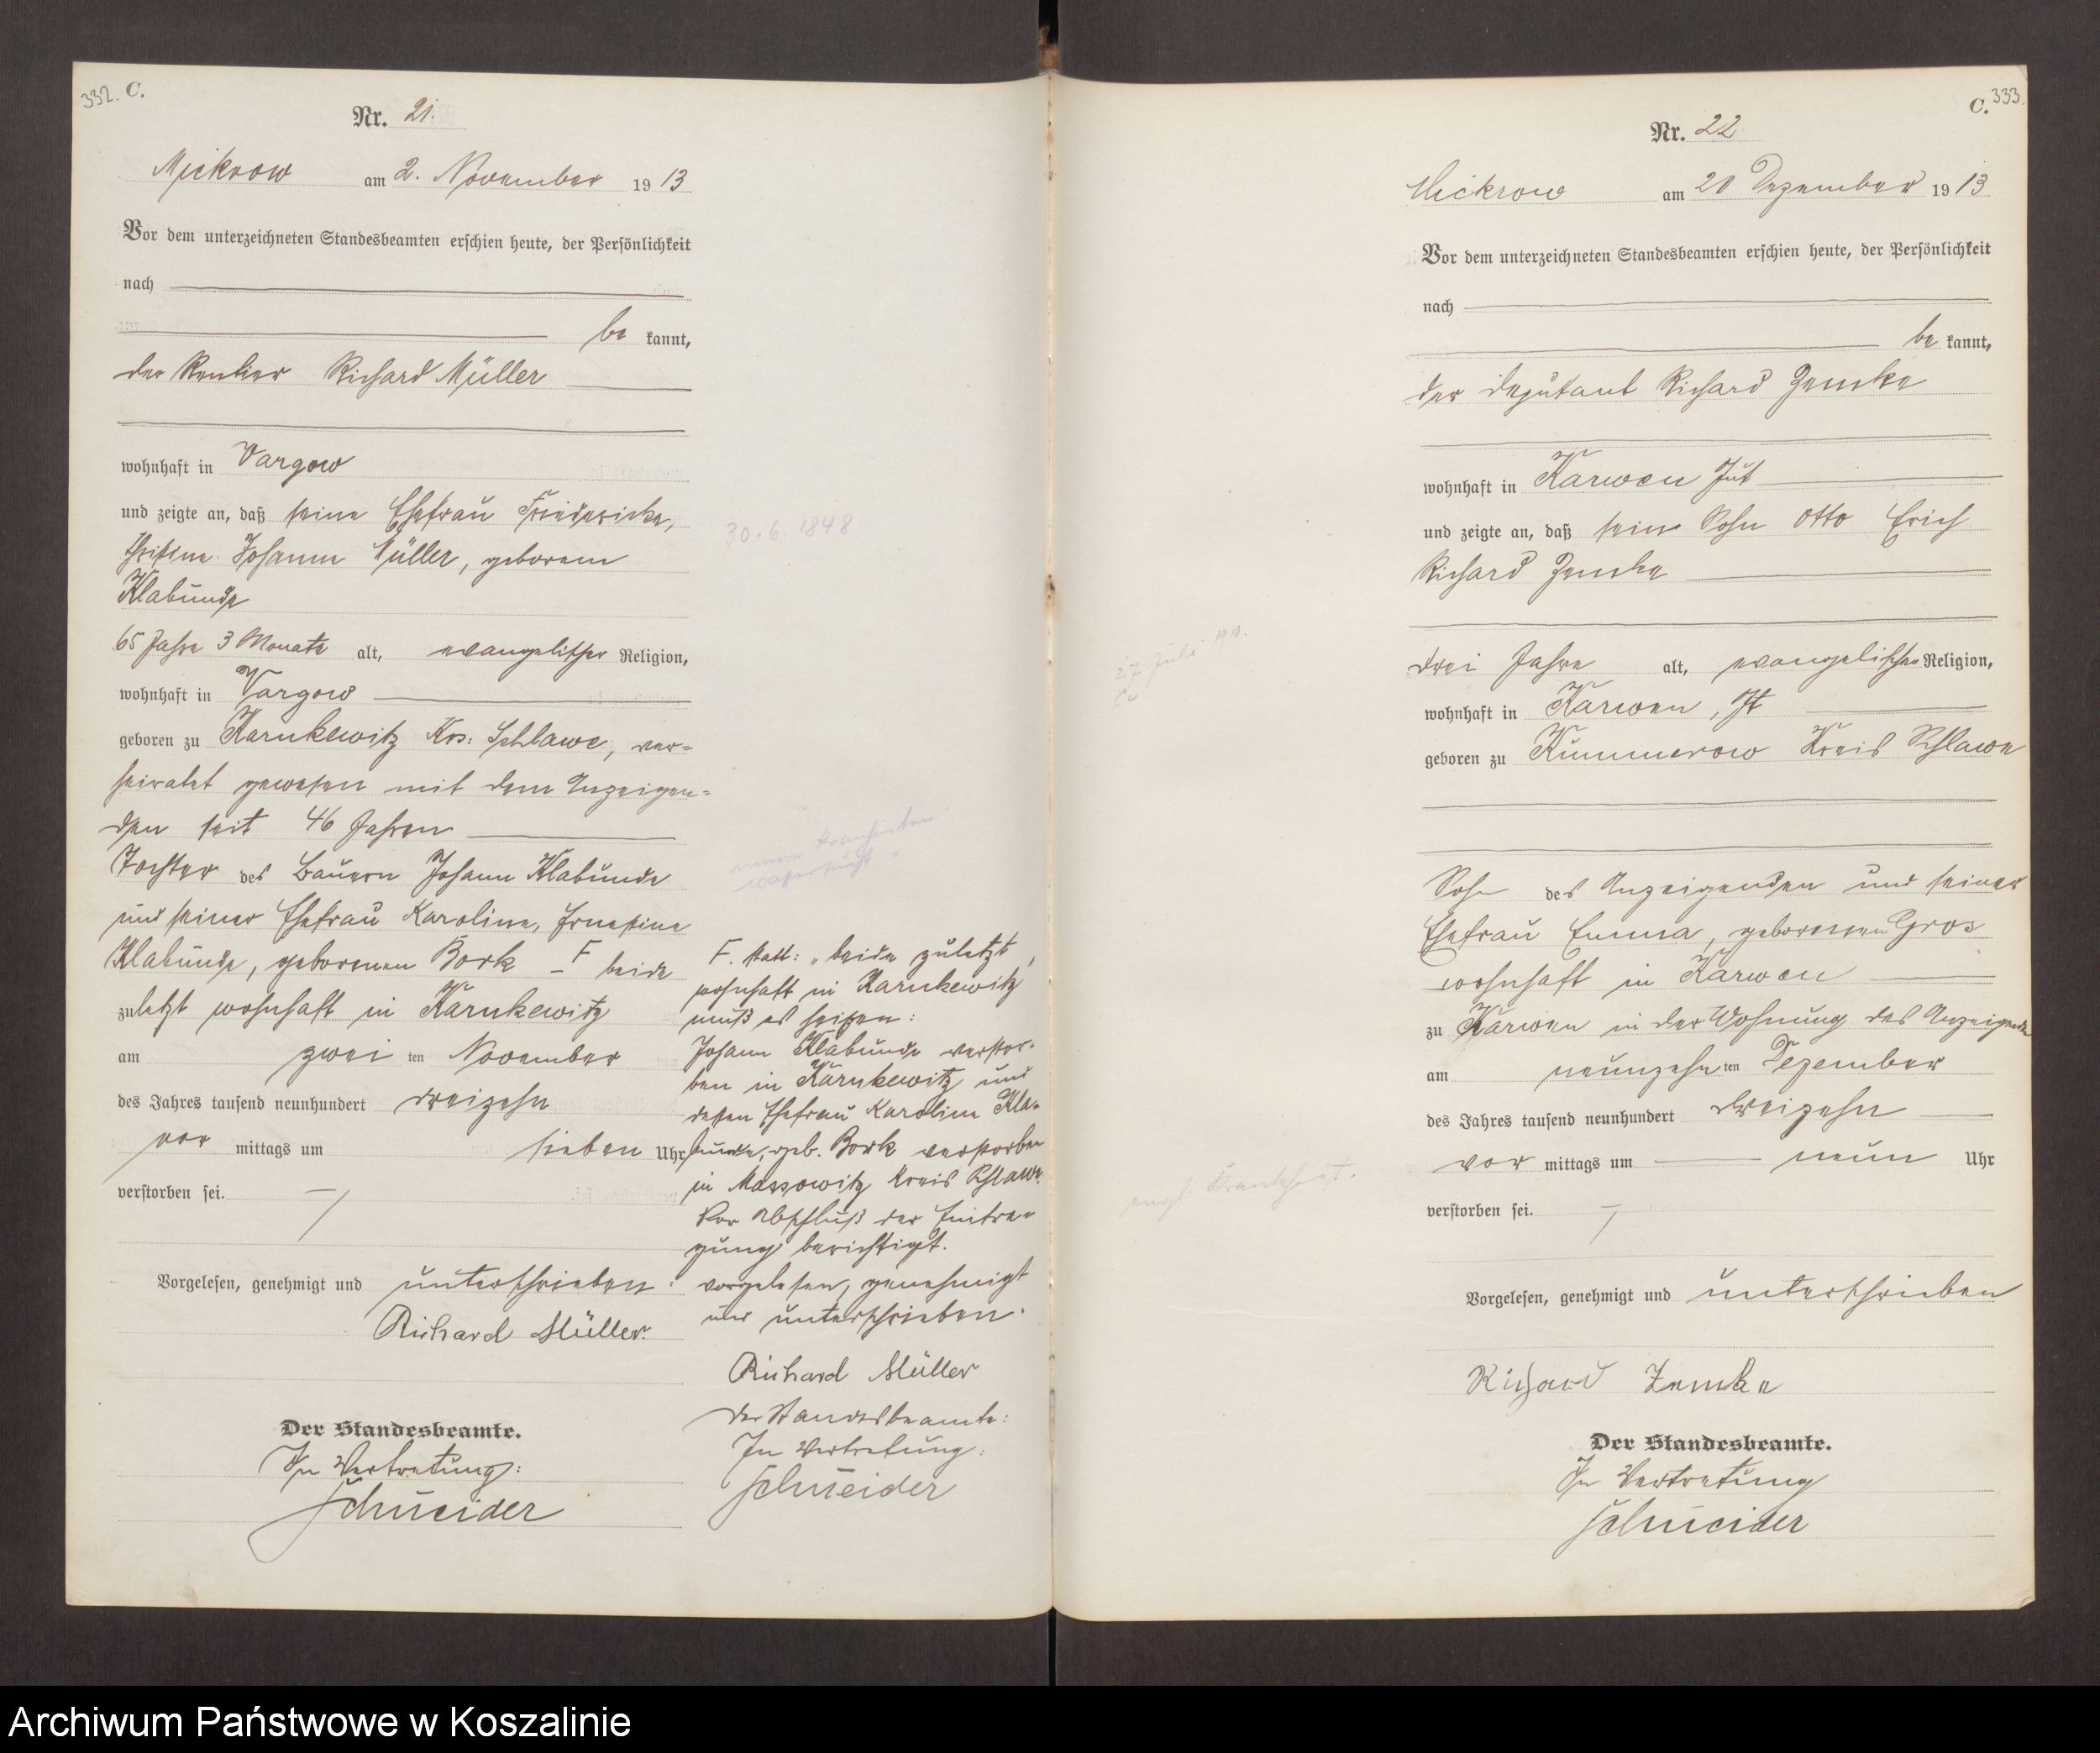 332. C.
Nr. 21.
Mickrow am 2. November 1913
Vor dem unterzeichneten Standesbeamten erschien heute, der Persönlichkeit
nach
be kannt,
der Rentier Richard Müller
wohnhaft in Vargow
und zeigte an, daß seine Ehefrau Friedericke,
Christine Johanne Müller, geborene
Klabunde
65 Jahre 3 Monate alt, evangelischer Religion,
wohnhaft in Vargow
geboren zu Karnkewitz Krs: Schlawe, ver=
heiratet gewesen mit dem Anzeigen=
den seit 46 Jahren
Tochter des Bauern Johann Klabunde
und seiner Ehefrau Karoline, Ernestine
Klabunde, geborenen Bork – F beide
zuletzt wohnhaft in Karnkewitz
am zwei ten November
des Jahres tausend neunhundert dreizehn
vor mittags um sieben Uhr
verstorben sei.
Vorgelesen, genehmigt und unterschrieben:
Richard Müller.
Der Standesbeamte.
In Vertretung:
Schneider
30.6.1848
F. statt: „beide zuletzt,
wohnhaft in Karnkewitz
muß es heißen:
Johann Klabunde verstor-
ben in Karnkewitz und
dessen Ehefrau Karoline Kla-
bunde, geb. Bork verstorben
in Massowitz Kreis Schlawe.
Vor Abschluß der Eintra-
gung berichtigt.
vorgelesen, genehmigt
und unterschrieben.
Richard Müller
Der Standesbeamte:
In Vertretung:
Schneider
C. 333.
Nr. 22
Mickrow am 20 Dezember 1913
Vor dem unterzeichneten Standesbeamten erschien heute, der Persönlichkeit
nach
be kannt,
der Deputant Richard Zemke
wohnhaft in Karwen Gut
und zeigte an, daß sein Sohn Otto Erich
Richard Zemke
drei Jahre alt, evangelischer Religion,
wohnhaft in Karwen, Gt
geboren zu Kummerow Kreis Schlawe
Sohn des Anzeigenden und seiner
Ehefrau Emma, geborenen Gros
wohnhaft in Karwen
zu Karwen in der Wohnung des Anzeigenden
am neunzehn ten Dezember
des Jahres tausend neunhundert dreizehn
vor mittags um neun Uhr
verstorben sei.
Vorgelesen, genehmigt und unterschrieben
Richard Zemke
Der Standesbeamte.
In Vertretung
Schneider
27. Juli 1910.
engl. Krankheit.
Archiwum Państwowe w Koszalinie